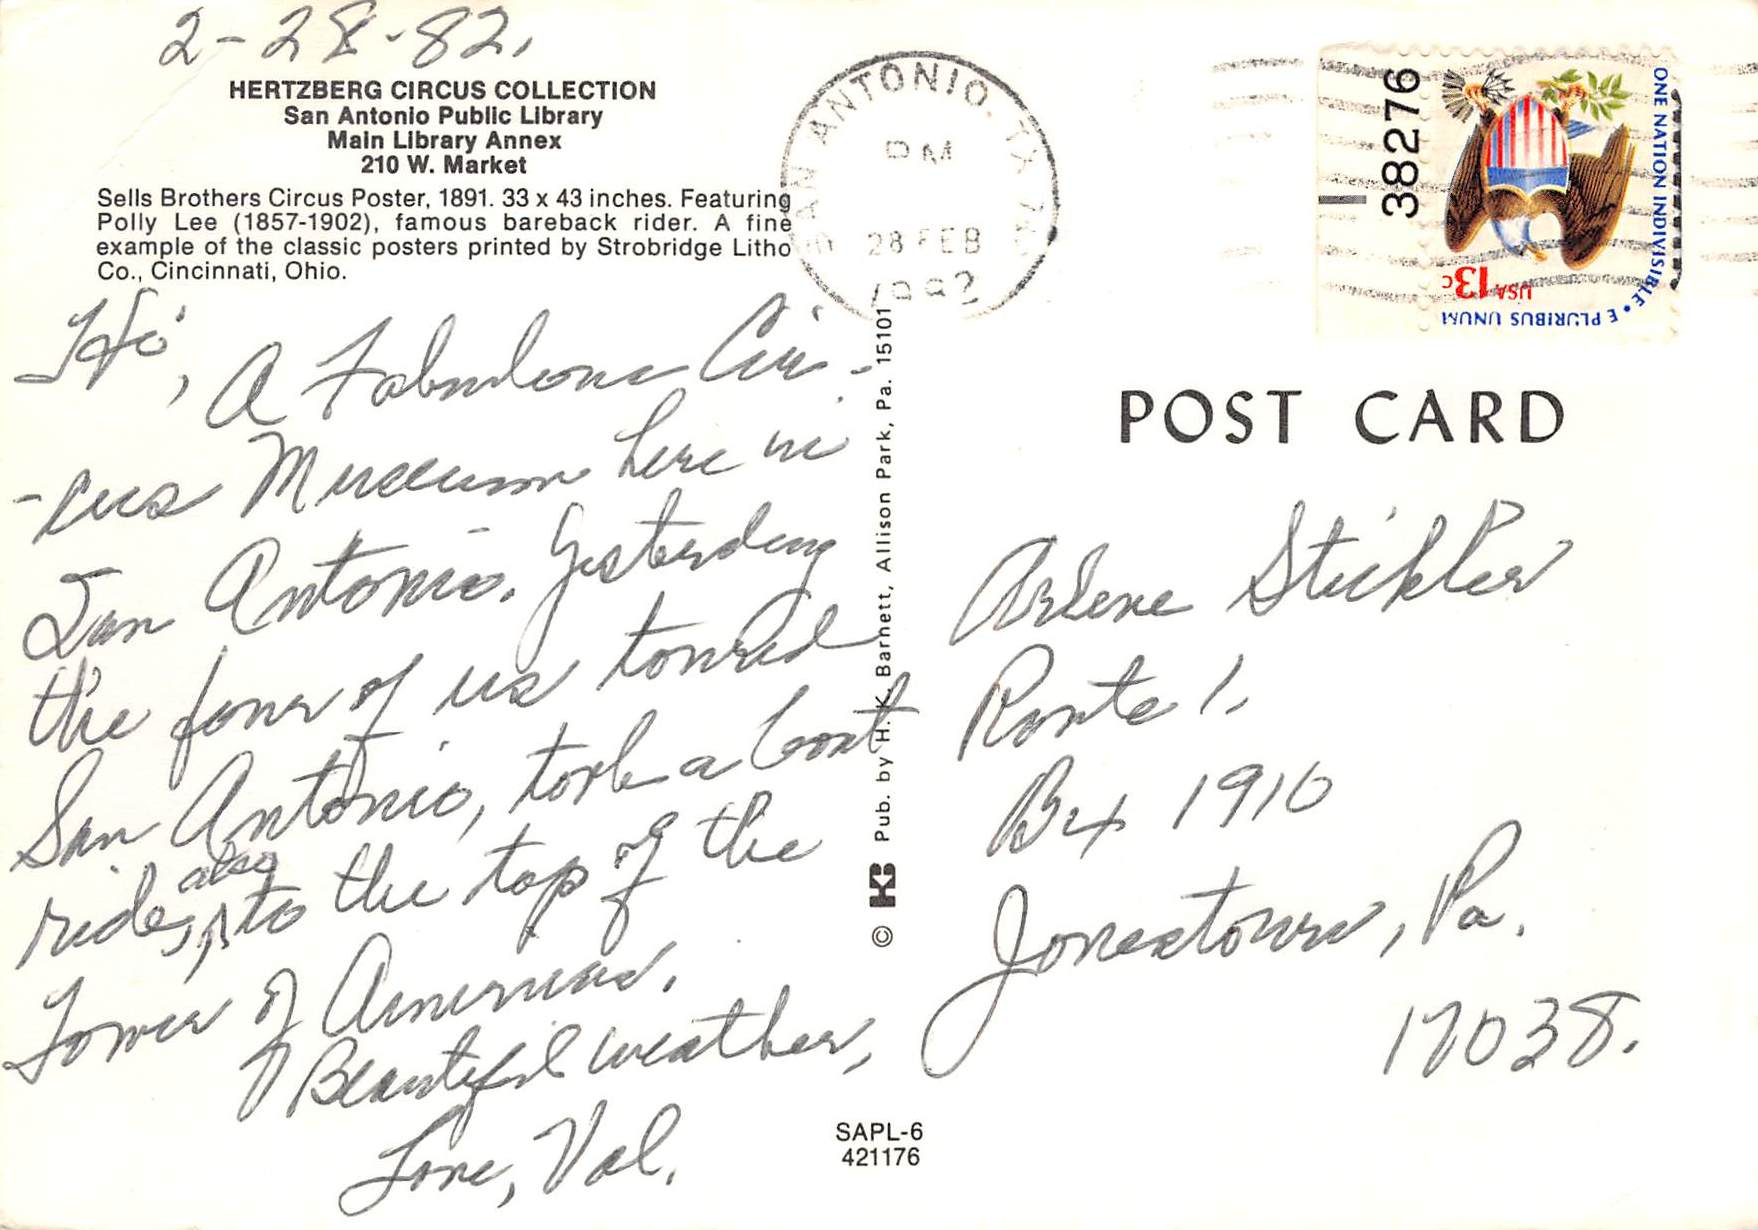 2-28-82.
HERTZBERG CIRCUS COLLECTION
San Antonio Public Library
Main Library Annex
210 W. Market
Sells Brothers Circus Poster, 1891. 33 x 43 inches. Featuring
Polly Lee (1857-1902), famous bareback rider. A fine
example of the classic posters printed by Strobridge Litho
Co., Cincinnati, Ohio.
Hi, A Fabulous Cir-
-cus Museum here in
San Antonio. Yesterday
the four of us toured
San Antonio, took a boat
ride, also to the top of the
Tower of Americas.
Beautiful weather,
Love, Val.
Pub. by H. K. Barnett, Allison Park, Pa. 15101
© HKB
SAPL-6
421176
SAN ANTONIO, TX
PM
28 FEB
1982
38276
ONE NATION INDIVISIBLE • E PLURIBUS UNUM
USA 13c
POST CARD
Arlene Stickler
Route 1.
Bx 1910
Jonestown, Pa.
17038.